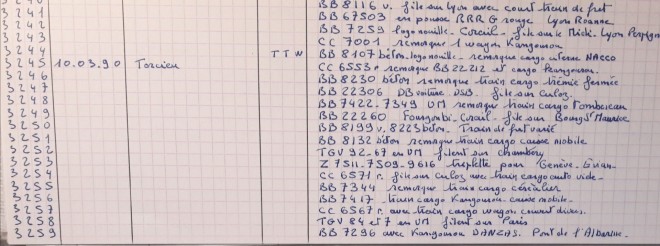 3241 BB 8116 v. file sur Lyon avec court train de fret
3242 BB 67503 en pousse RRR G rouge Lyon Roanne
3243 BB 7259 logo nouille - Corail - file sur le Midi. Lyon
CC 7001 remorque 1 wagon Kangourou
3244 BB 8107 béton. logo nouille. remorque cargo citerne NACCO
3245 10.03.90 Torcieu TTW CC 6553 remorque BB 22212 et cargo Kangourou.
3246 BB 8230 béton remorque train cargo trémie fermée
3247 BB 22306 DB voiture DSB. file sur Culoz.
3248 BB 7422-7349 UM remorque train cargo Tombereau
3249 BB 22260 Fourgon bi-Corail - file sur Bourg St Maurice
3250 BB 8199 v. 8223 béton. Train de fret varié
3251 BB 8132 béton remorque train cargo caisse mobile
3252 TGV 92-67 en UM filent sur Chambéry
3253 Z 7511-7509-9616 triplette pour Genève-Evian
3254 CC 6571 r. file sur Culoz avec train cargo auto vide
3255 BB 7344 remorque train cargo céréalier
3256 BB 7417 train cargo Kangourou caisse mobile
3257 CC 6567 r. avec train cargo wagon couvert divers.
3258 TGV 84 et 7 en UM filent sur Paris
3259 BB 7296 avec Kangourou DANZAS. Pont de l'Albarine